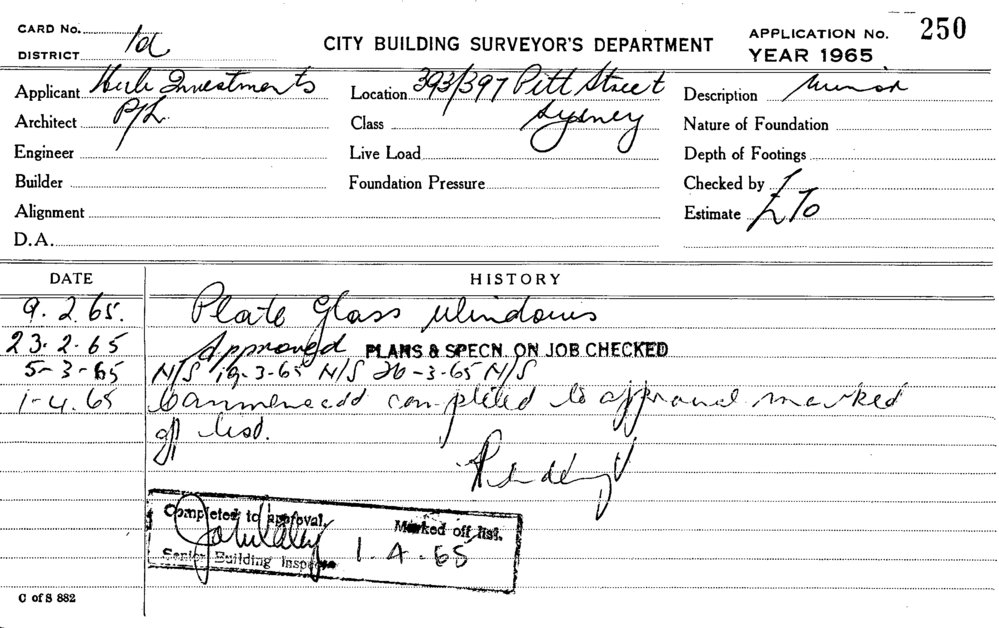 CARD No.
DISTRICT 1d
CITY BUILDING SURVEYOR'S DEPARTMENT
APPLICATION No. 250
YEAR 1965
Applicant Investments
Location 393/397 Pitt Street
Description Minor
Architect P/L
Class Sydney
Nature of Foundation
Engineer
Live Load
Depth of Footings
Builder
Foundation Pressure
Checked by
Alignment
Estimate £70
D.A.
DATE HISTORY
9.2.65. Plate Glass Windows
23.2.65 Approved PLANS & SPECN. ON JOB CHECKED
5-3-65 N/S 19-3-65 N/S 26-3-65 N/S
1-4.65 completed to approval marked
off list.
Completed to approval. Marked off list.
1.4.65
Senior Building Inspector
C of S 882